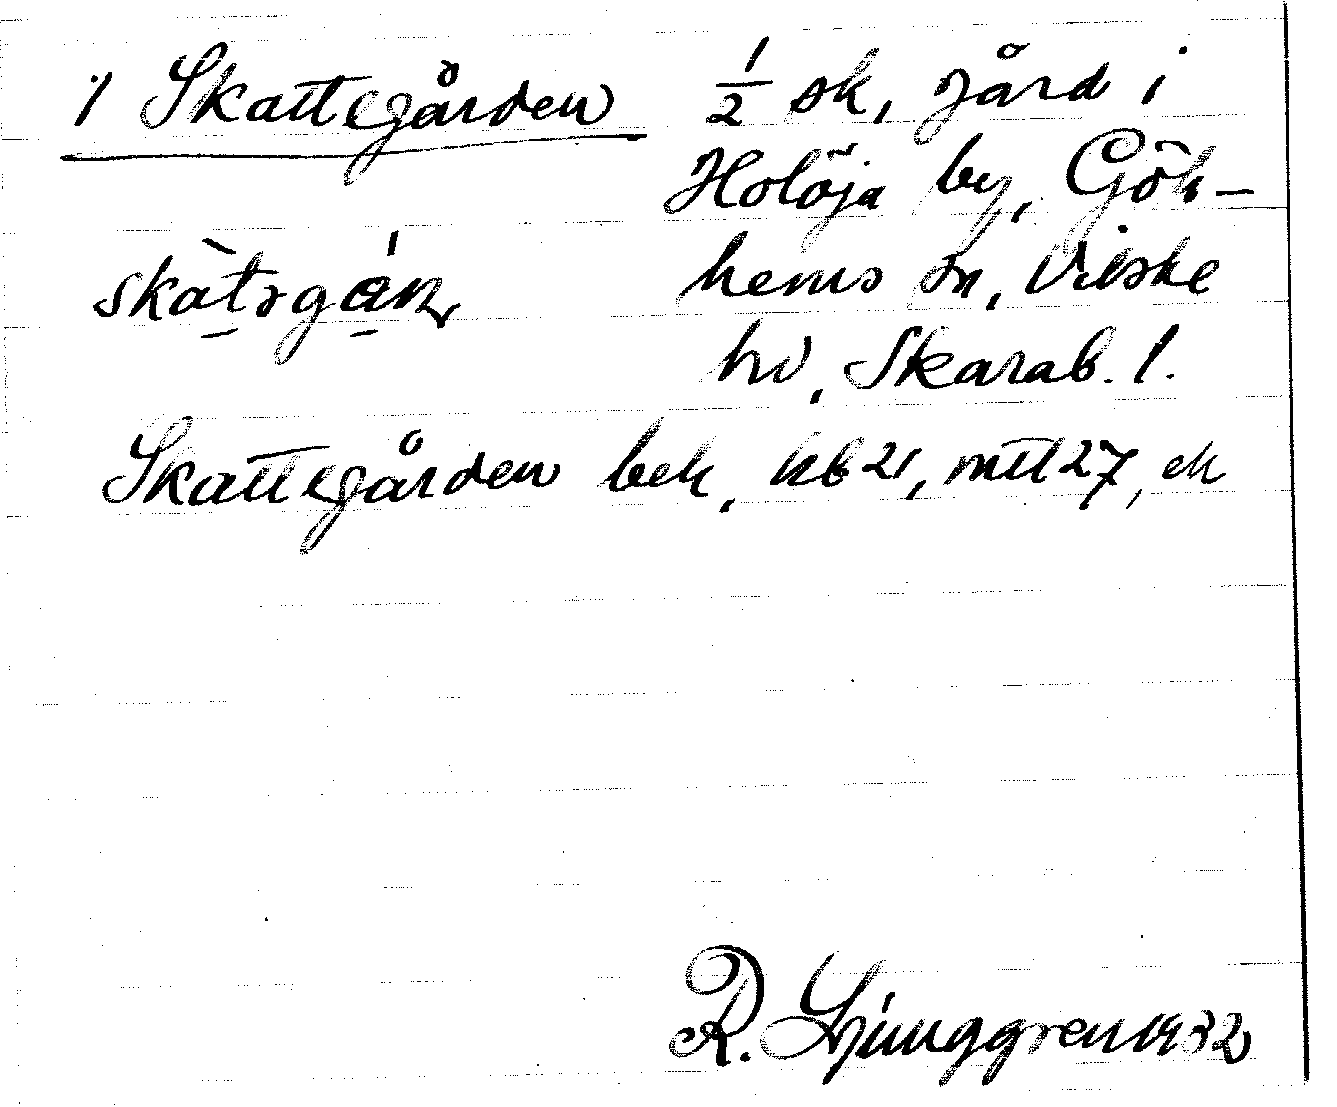 1 Skattegården ½ sk, gård i
Holöja by, Gök-
hems sn, Vilske
hd, Skarab. l.
Skattegården bek, kb 21, mtl 27, ek
R. Ljunggren 1932